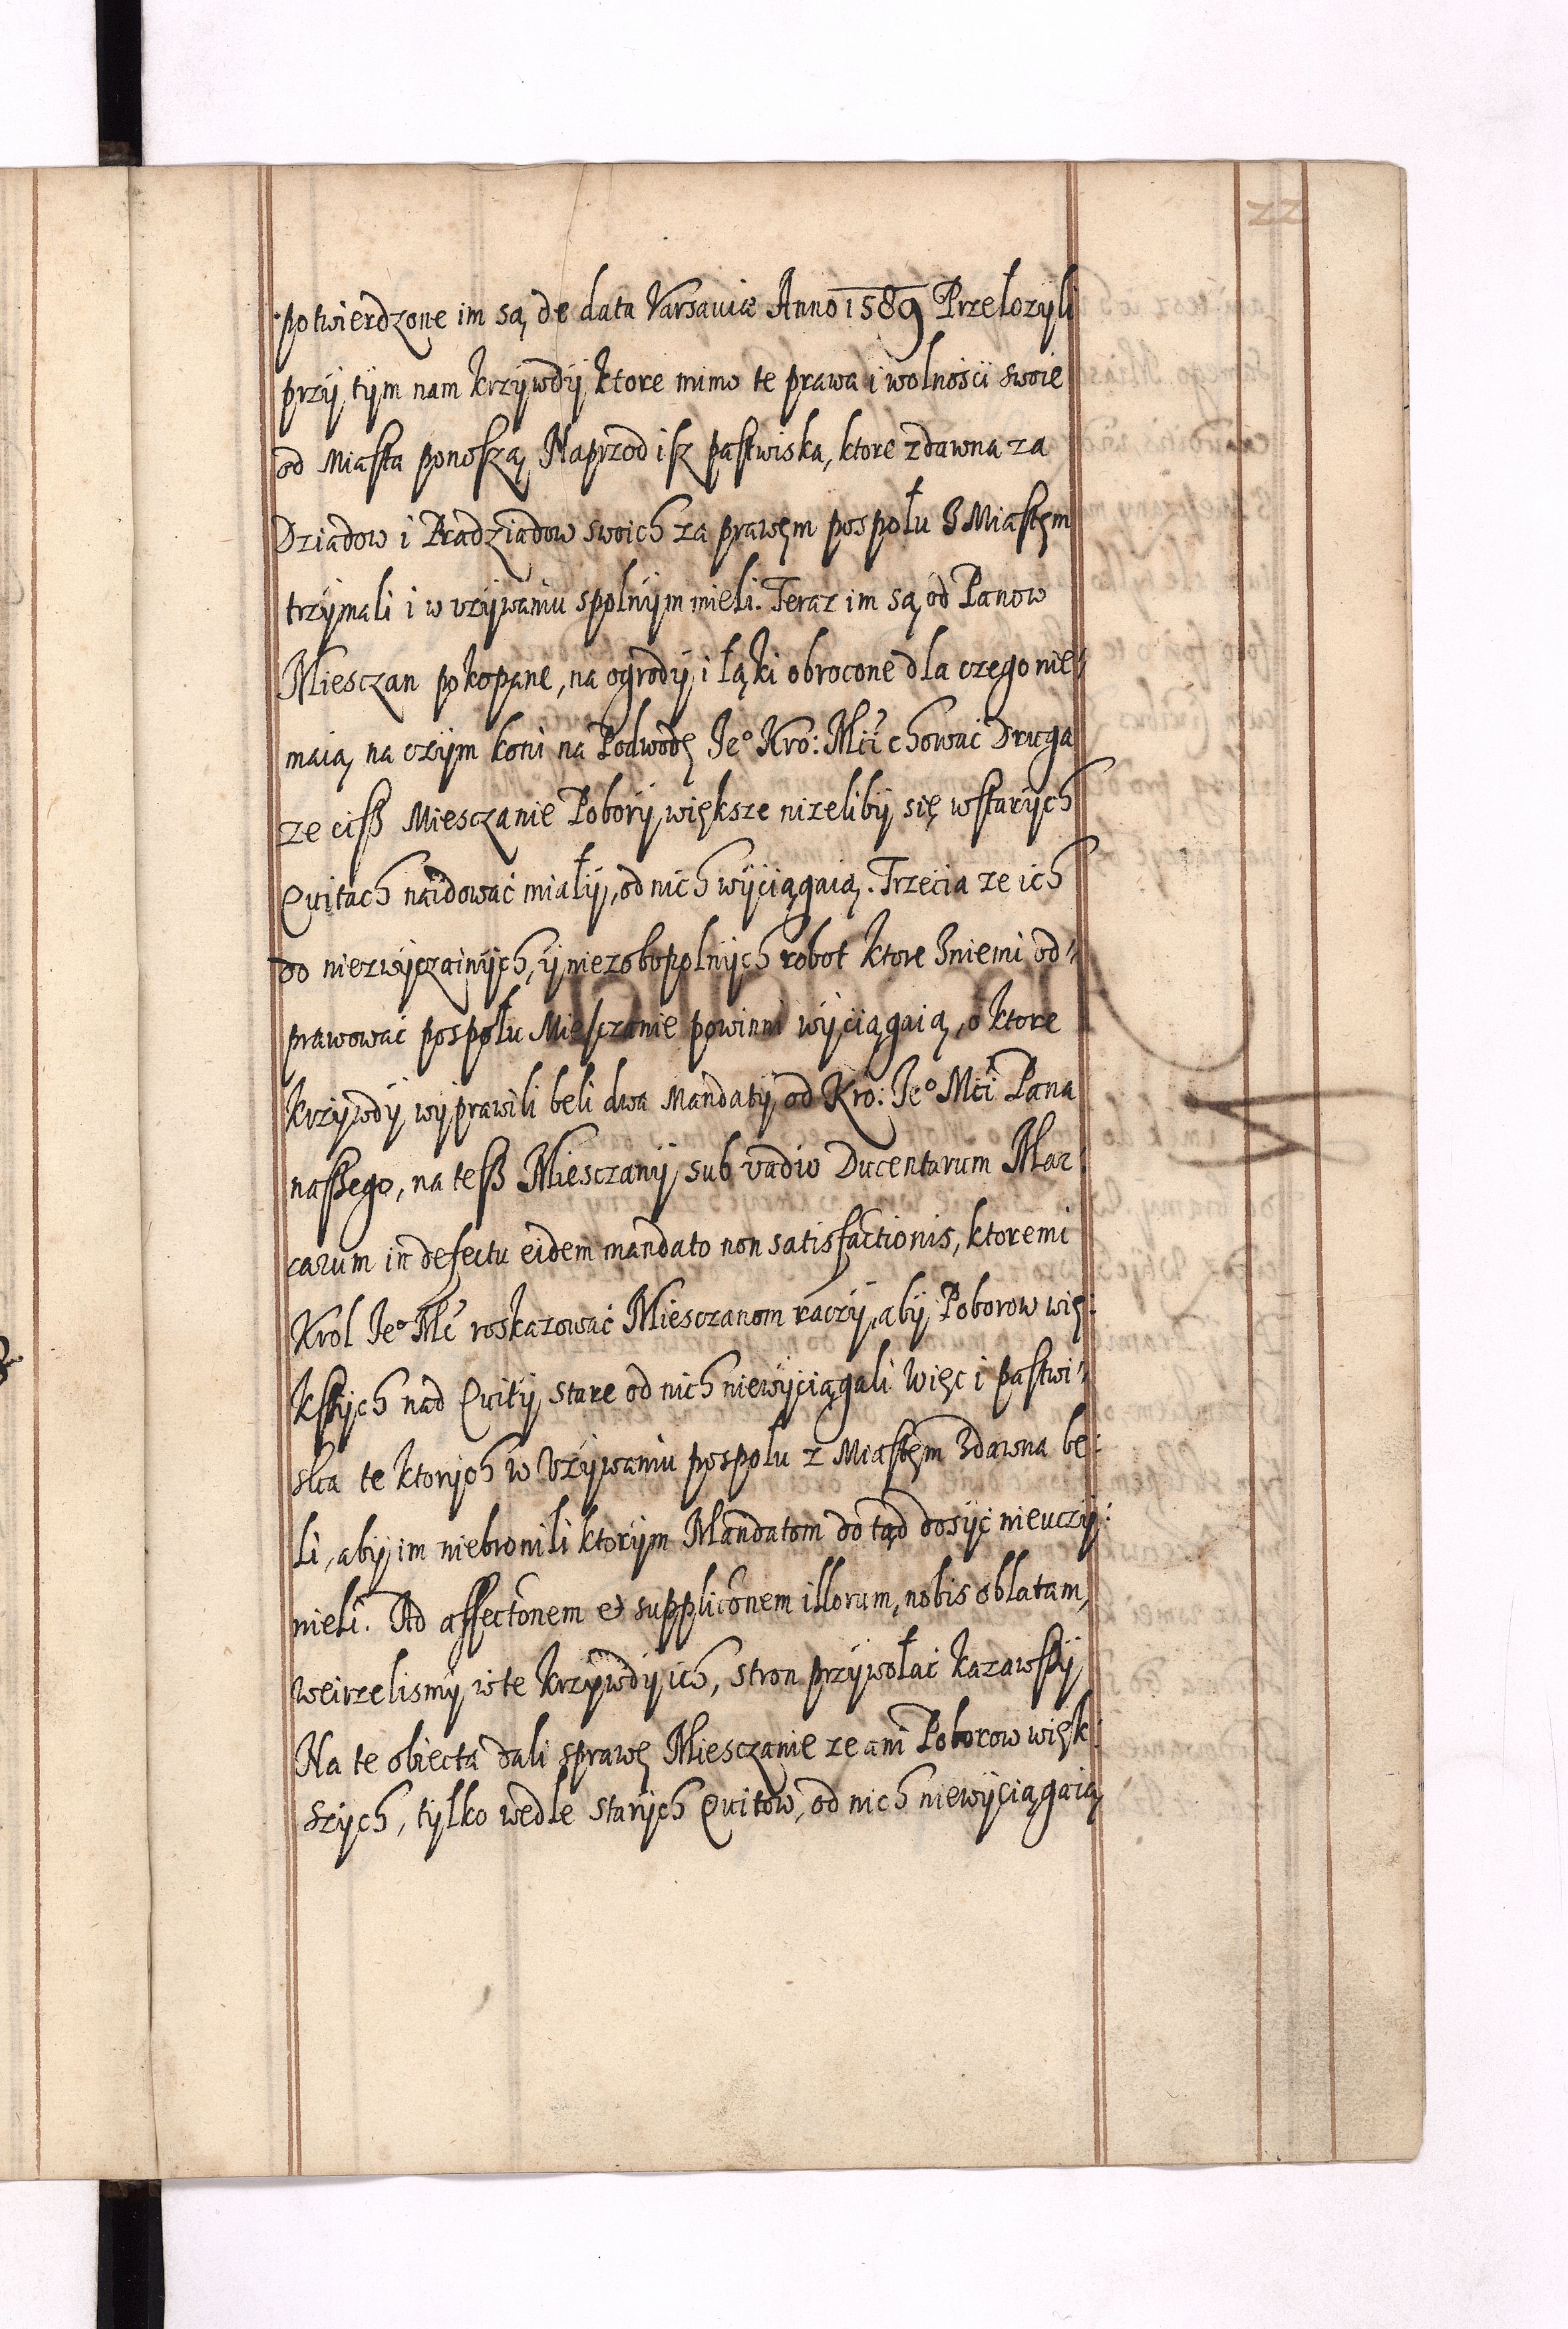 22
potwierdzone im są de data Varsauiæ Anno 1589 Przełozÿli
przÿ tÿm nam krzÿwdÿ ktore mimo te prawa i wolnoscï swoie
od Miasta ponoszą Naprzod isz pastwiska, ktore zdawna za
Dziadow i Pradziadow swoich za prawęm pospołu z Miastęm
trzÿmali i w vzÿwaniu spolnÿm mieli. Teraz im są od Panow
Miesczan pokopane, na ogrodÿ i łąki obrocone dla czego nie⸗
maią na czÿm koni na Podwodę Je° Kro: Mći chować Druga
ze cisz Miesczanie Poborÿ większe nizelibÿ się wstarÿch
Quitach naidować miałÿ, od nich wÿciągaią. Trzecia ze ich
do niezwÿczainÿch, ÿ niezobopolnÿch robot ktore zniemi od⸗
prawować pospołu Miesczanie powinni wÿciągaią, o ktore
krzÿwdÿ wÿprawili beli dwa Mandatÿ od Kro: Je° Mći Pana
naszego, na tesz Miesczanÿ sub vadio Ducentarum Mar:
carum in defectu eidem mandato non satisfactionis, ktoremi
Krol Je° Mć roskazować Miesczanom raczÿ, abÿ Poborow wię:
kszÿch nad Quitÿ stare od nich niewÿciągali Więc i pastwi⸗
ska te ktorÿch w Vzÿwaniu pospolu z Miastęm zdawna be:
li, abÿ im niebronili ktorÿm Mandatom do tąd dosÿć nieuczÿ:
nieli. Ad affectõnem et supplicõnem illorum, nobis oblatam,
weirzelismÿ w te krzÿwdÿ ich, stron przÿwołać kazawszÿ
Na te obiecta dali sprawę Miesczanie ze ani Poborow więk:
szÿch, tÿlko wedle starÿch Quitow, od nich niewÿciągaią